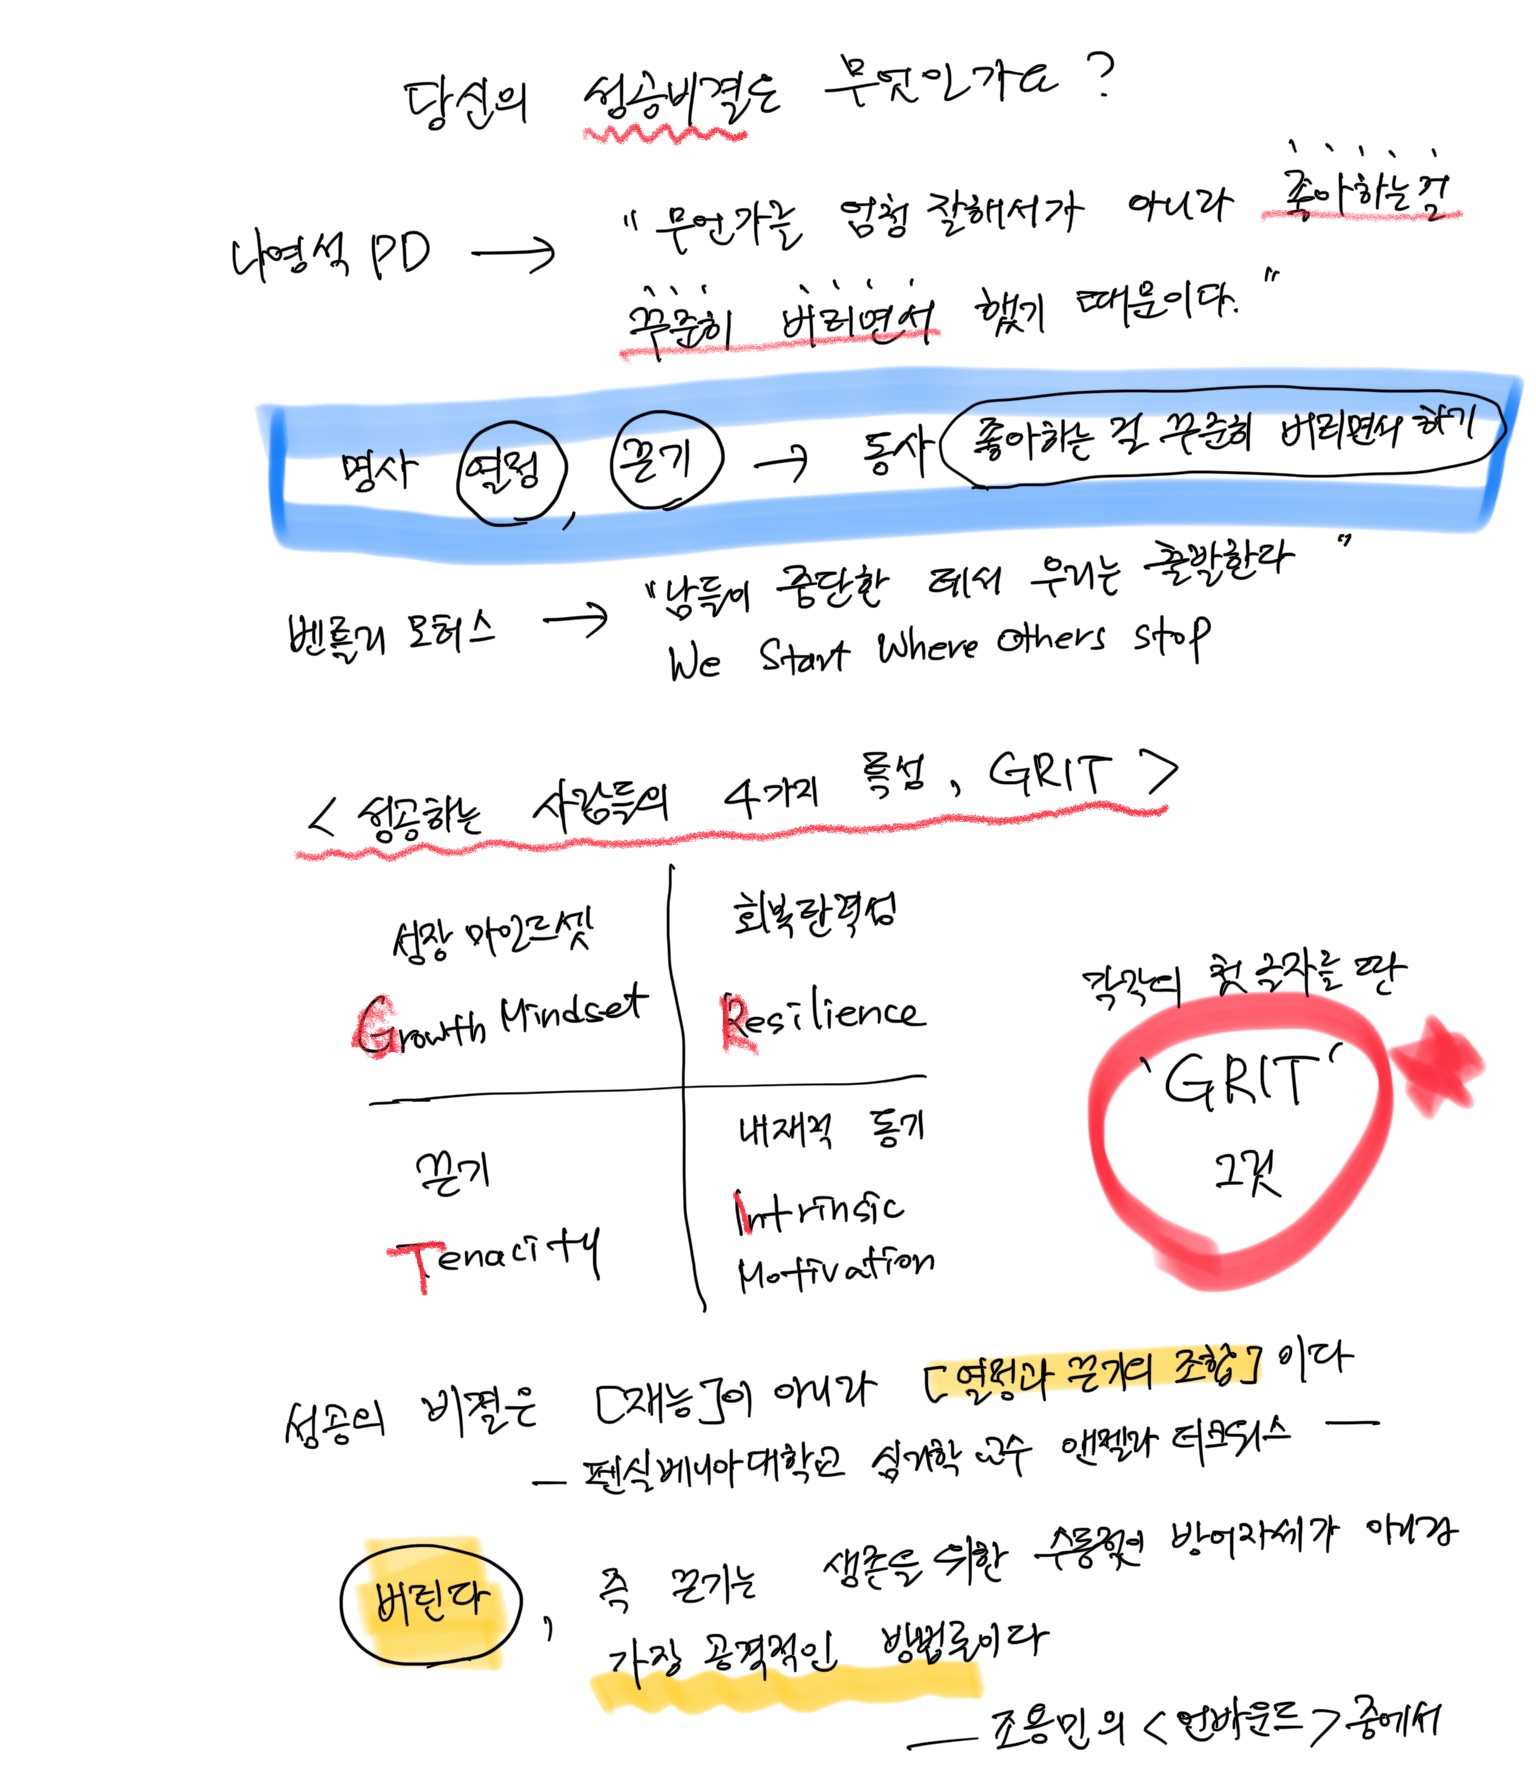 당신의 성공비결은 무엇인가요?
나영석 PD → "무언가를 엄청 잘해서가 아니라 좋아하는걸
꾸준히 버티면서 했기 때문이다."
명사 열정, 끈기 → 동사 좋아하는 걸 꾸준히 버티면서 하기
벤틀리 모터스 → "남들이 중단한 데서 우리는 출발한다"
We Start Where Others Stop
< 성공하는 사람들의 4가지 특성, GRIT >
성장 마인드셋
Growth Mindset
회복탄력성
Resilience
끈기
Tenacity
내재적 동기
Intrinsic
Motivation
각각의 첫 글자를 딴
'GRIT'
그릿
성공의 비결은 [재능]이 아니라 [열정과 끈기의 조합]이다
— 펜실베니아대학교 심리학 교수 앤젤라 더크워스 —
버틴다, 즉 끈기는 생존을 위한 수동적인 방어자세가 아니라
가장 공격적인 방법론이다
— 조용민의 <언바운드> 중에서